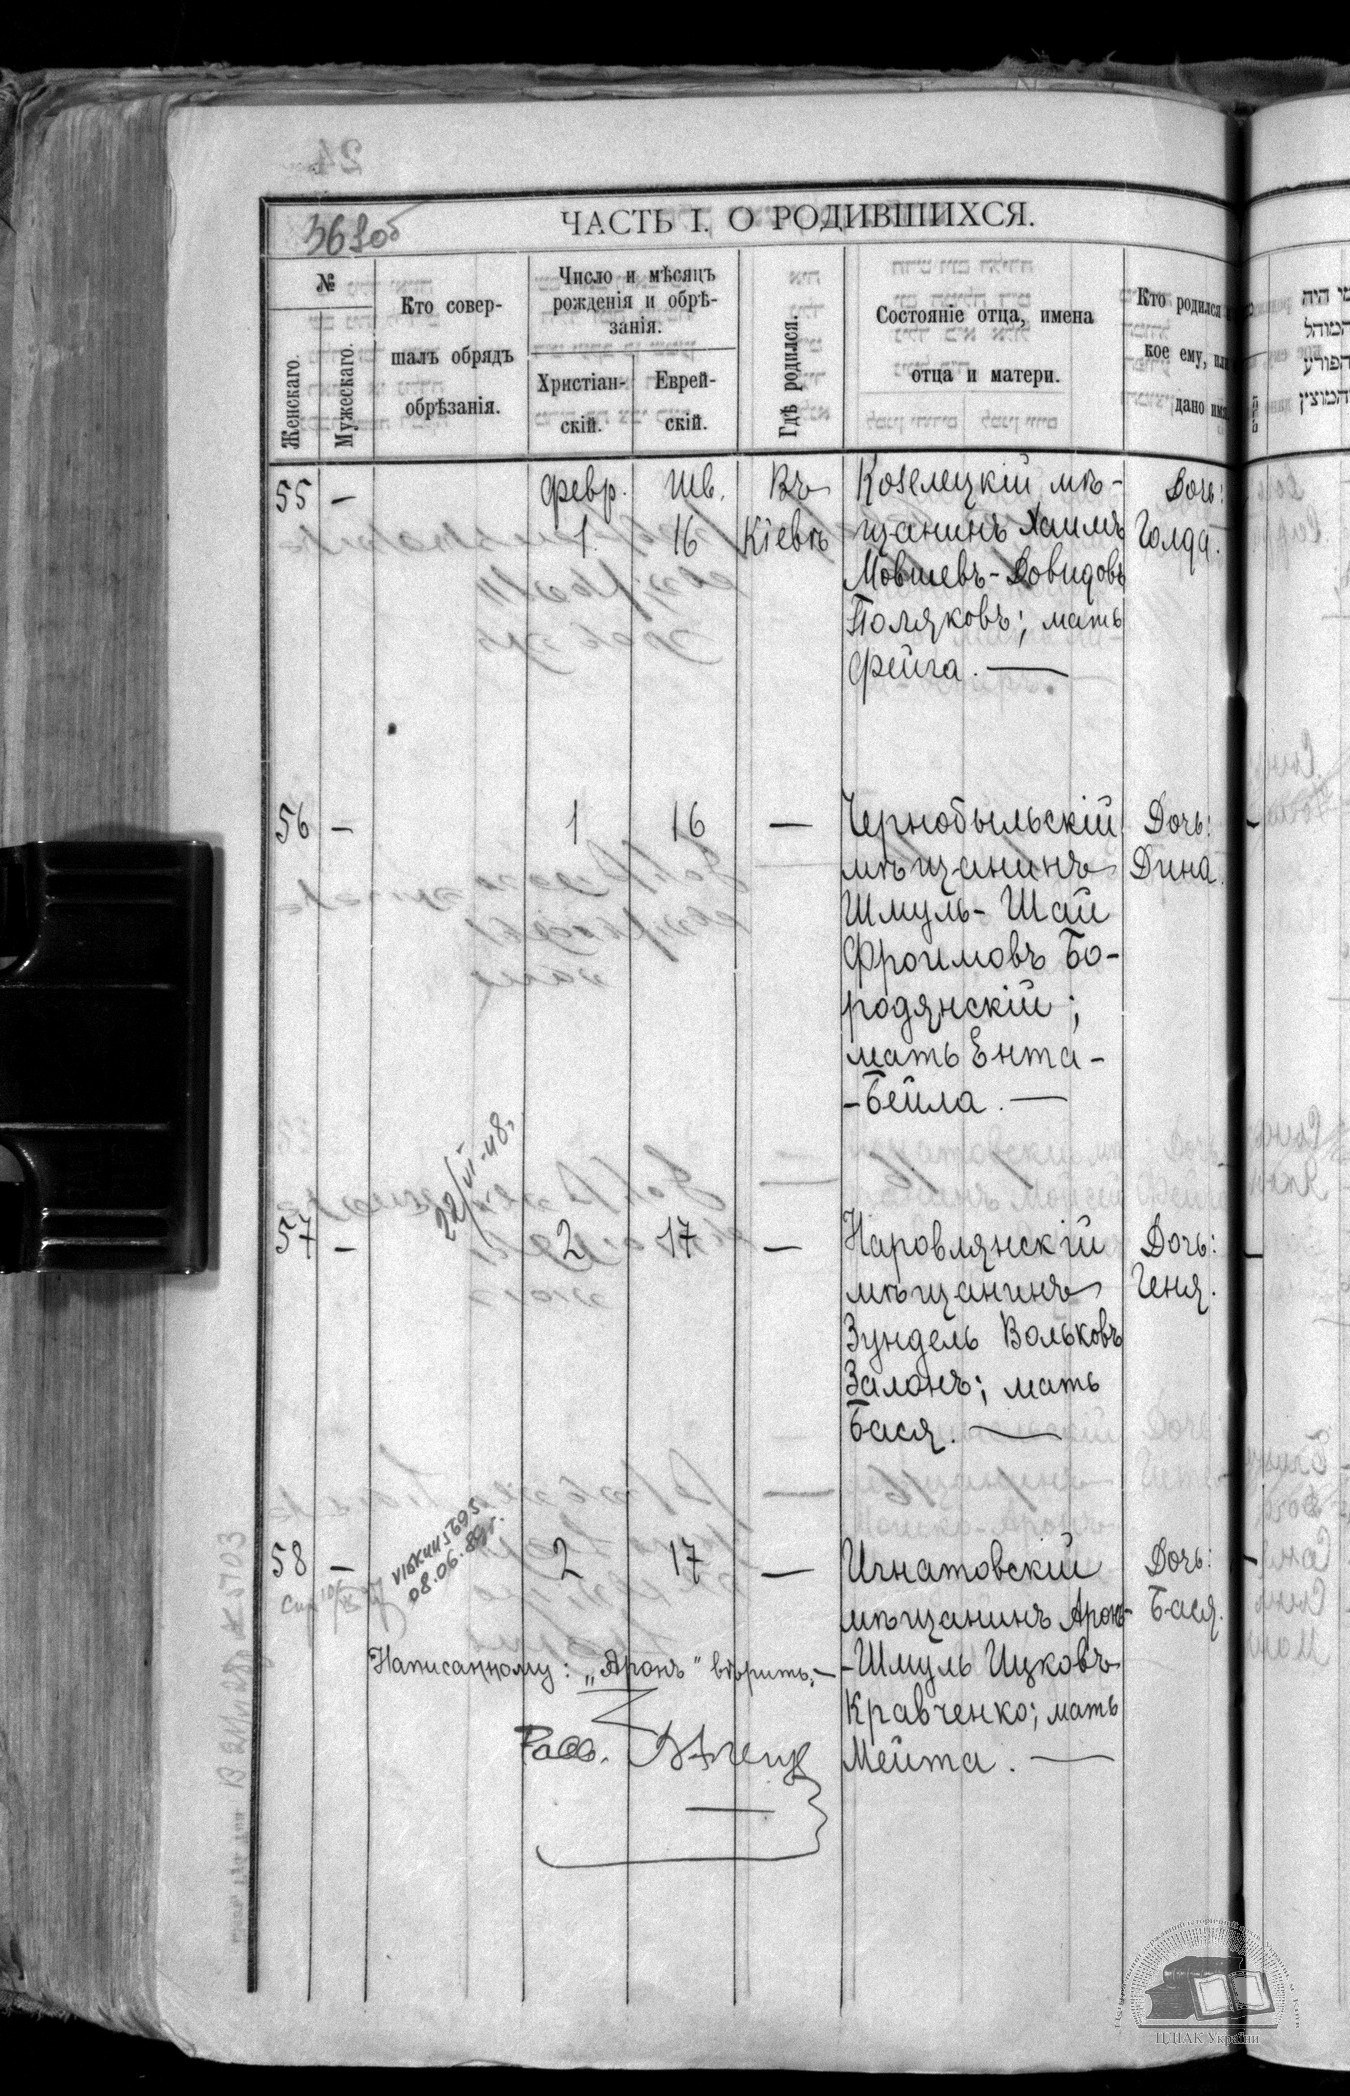 ЧАСТЬ I. О РОДИВШИХСЯ.
№
Женскаго.
Мужескаго.
Кто совер-
шалъ обрядъ
обрѣзанія.
Число и мѣсяцъ
рожденія и обрѣ-
занія.
Христіан-
скій.
Еврей-
скій.
Гдѣ родился.
Состояніе отца, имена
отца и матери.
Кто родился
кое ему, или
дано имя
55 — февр. 1. Шв. 16 Въ Кіевѣ
Козелецкій мѣ-
щанинъ Хаимъ
Мовшевъ-Довидовъ
Поляковъ; мать
Фейга. —
Дочь:
Голда.
56 — 1 16 —
Чернобыльскій
мѣщанинъ
Шмуль-Шай
Фроимовъ Бо-
родянскій;
мать Ента-
-Бейла. —
Дочь:
Дина.
22/VI-48г.
57 — 2 17 —
Наровлянскій
мѣщанинъ
Зундель Вольковъ
Залонъ; мать
Бася. —
Дочь:
Геня.
08.06.89г.
58 — 2 17 —
Игнатовскій
мѣщанинъ Аронъ-
-Шмуль Ицковъ
Кравченко; мать
Мейта. —
Дочь:
Бася.
Написанному: „Аронъ" вѣрить. —
Равв.
ЦДІАК України